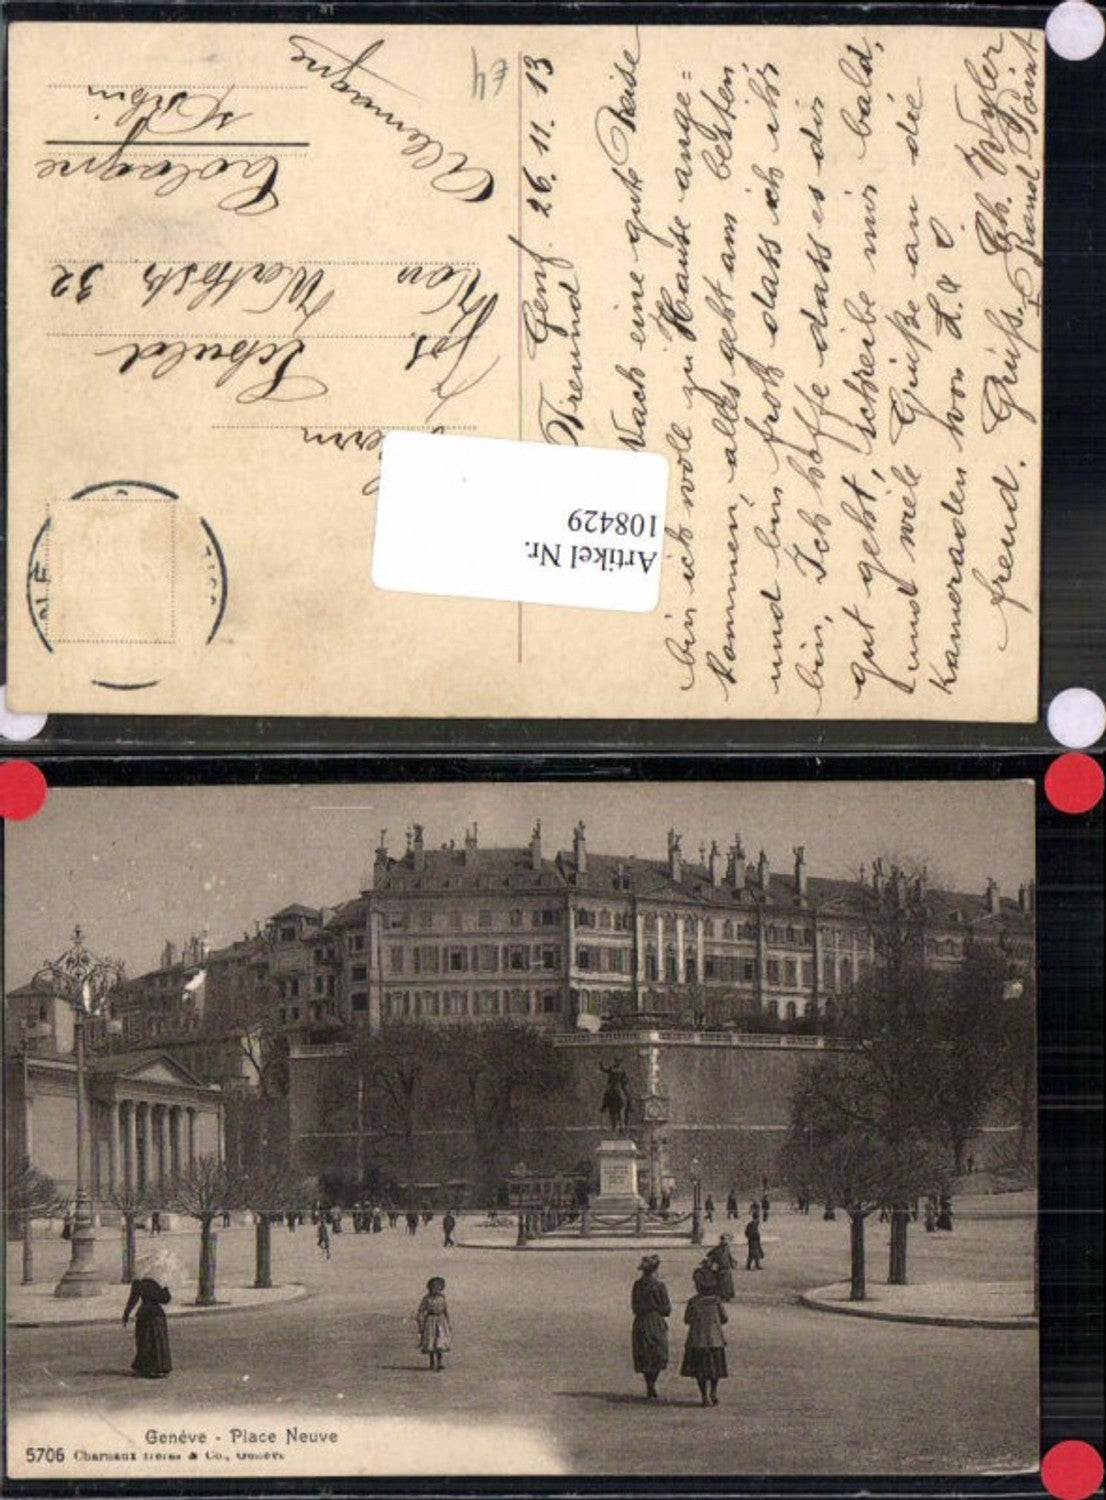 Genf. 26. 11. 13
Freund
Nach eine gute Reise
bin ich woll zu Hause ange=
kommen, alles geht am besten
und bin froh dass ich ihr
bin, Ich hoffe dass es dir
gut geht, schreibe mir bald,
und viele Grüße an die
Kameraden von L. &
freud. Grüss. Ch. Wyler
Rond Point
Herrn
Jos. Schuld
32
Cologne
Allemagne
Artikel Nr.
108429
Genève - Place Neuve
5706 Charnaux frères & Co., Genève